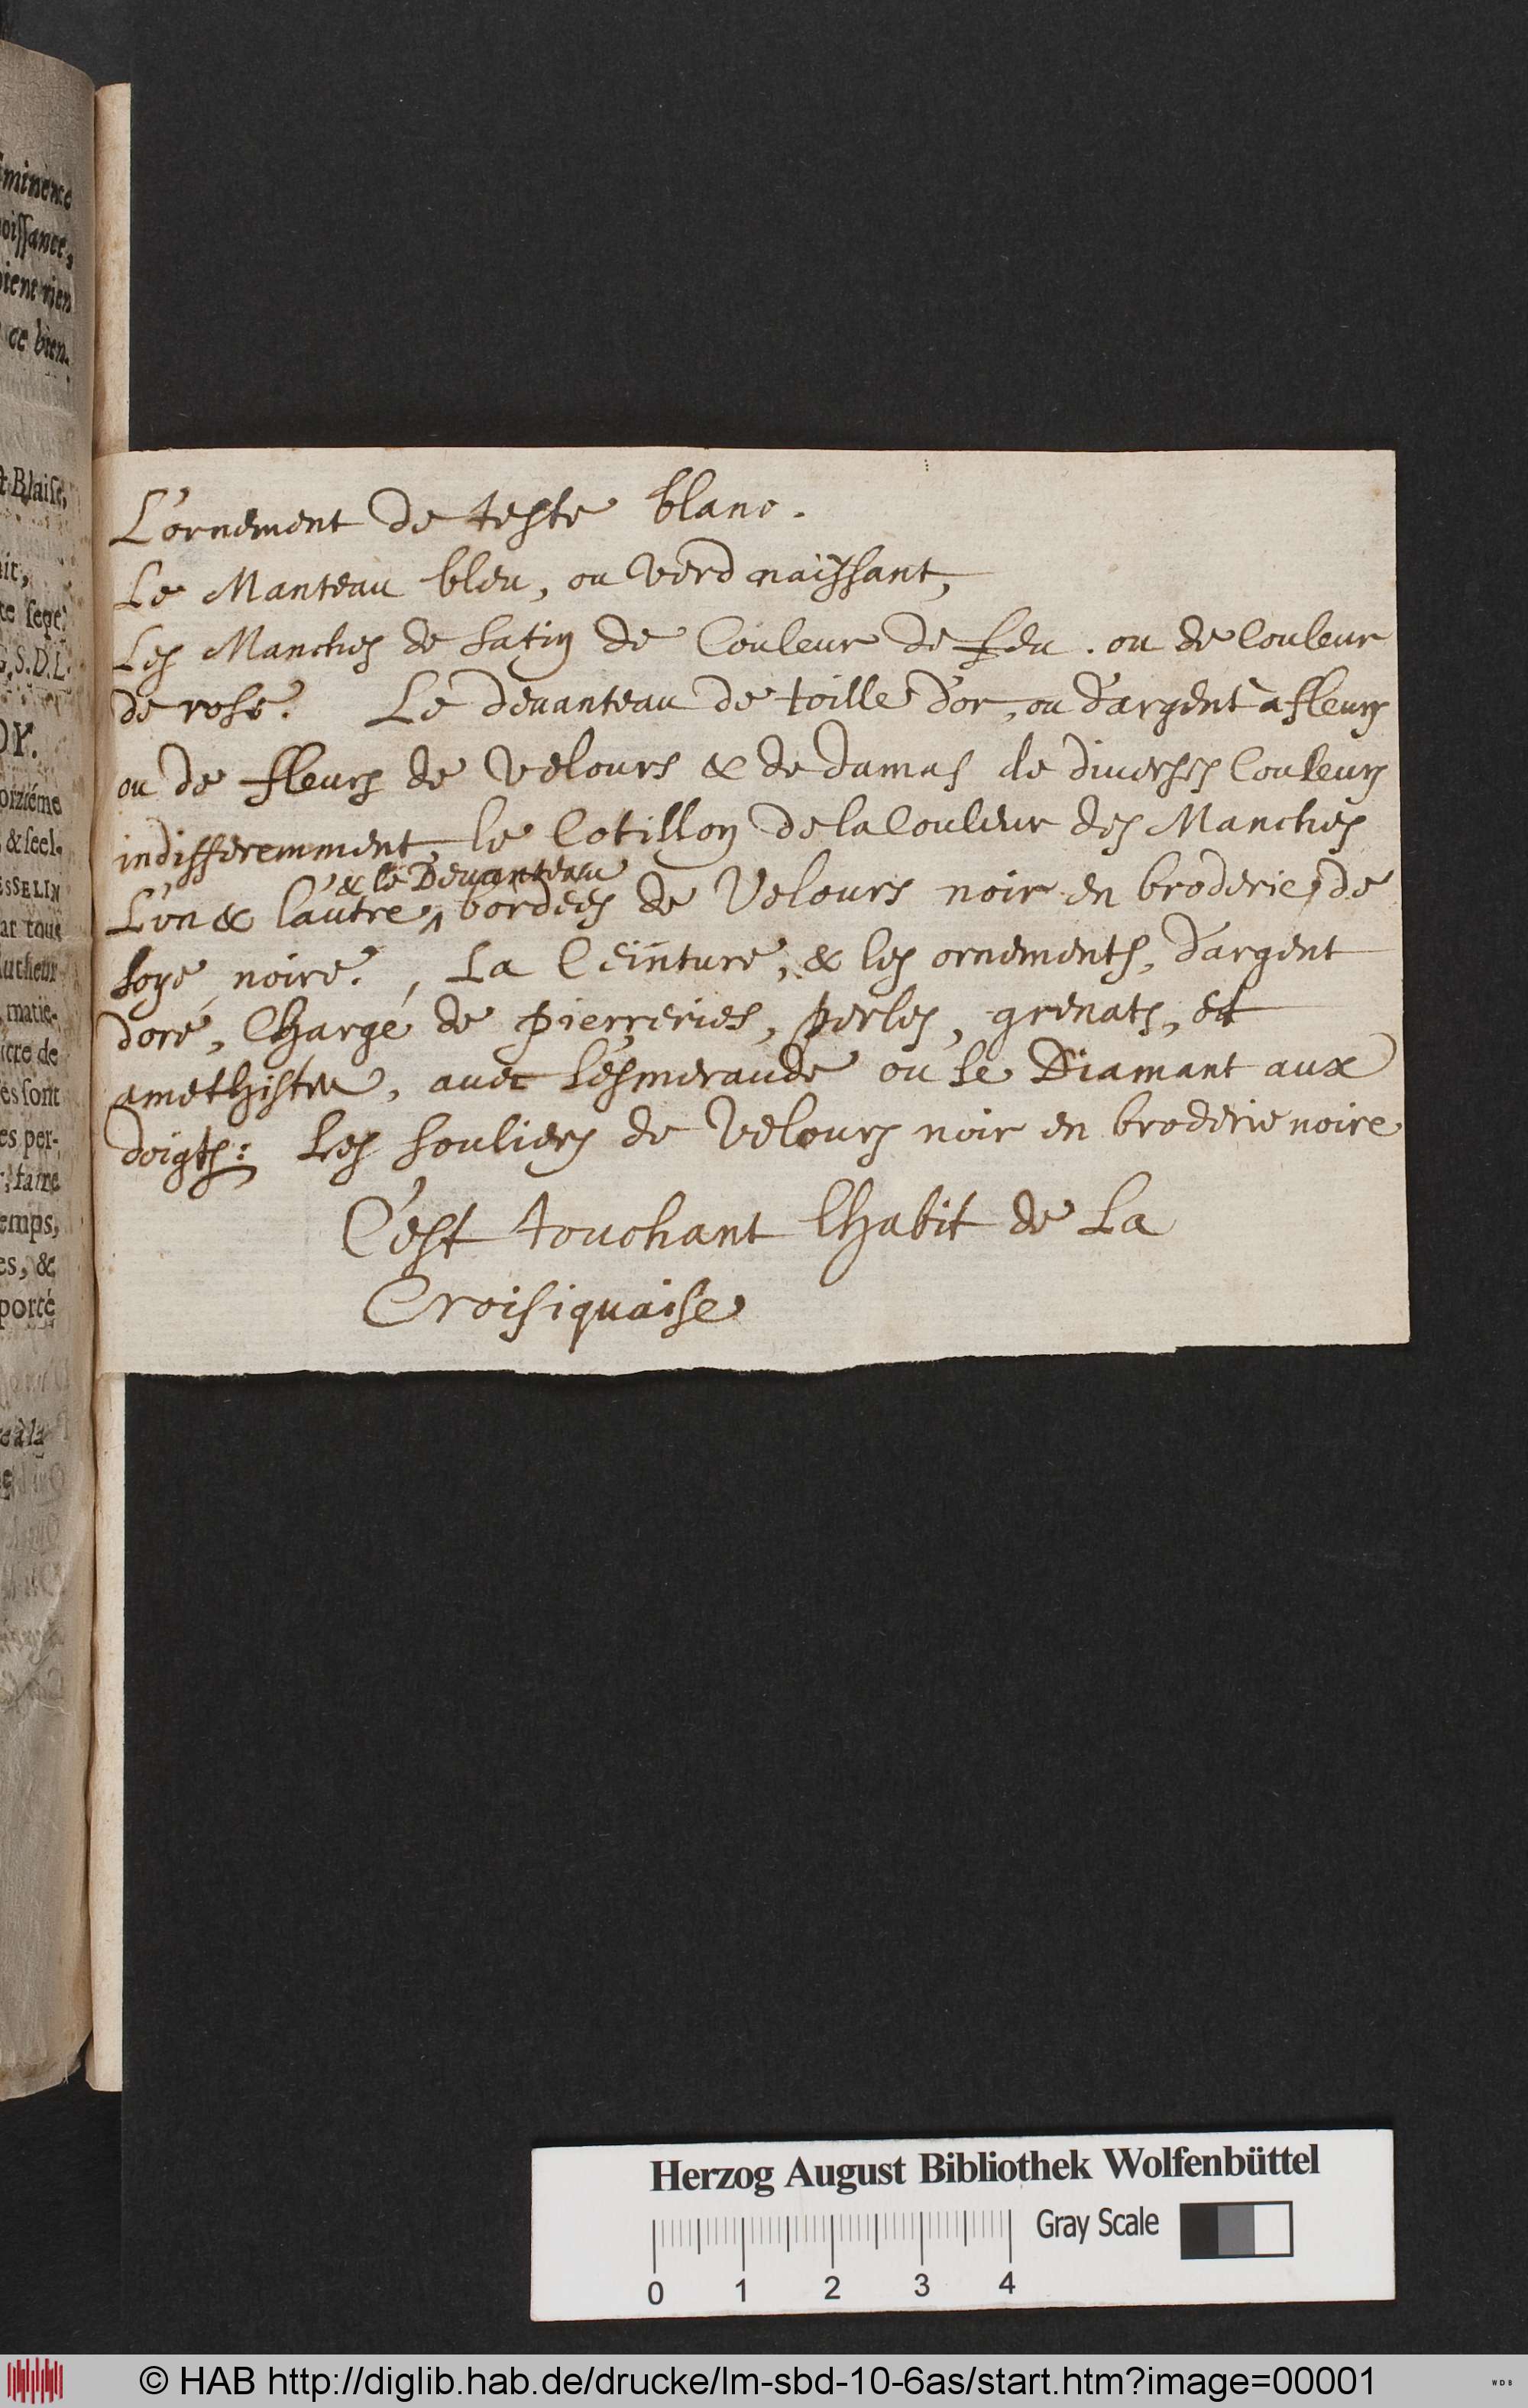 minence
oissance,
oient rien
ce bien.
t Blaise,
air,
te sept
G, S. D. L.
OY.
oiziéme
, & seel-
ESSELIN
ar tous
Autheur
matie-
iere de
es sont
es per-
, faire
emps,
es, &
porté
e à la
L'ornement de teste blanc.
Le Manteau bleu, ou verd naissant,
Les Manches de satin de Couleur de feu . ou de Couleur
de rose. Le devanteau de toille d'or, ou d'argent à fleurs
ou de fleurs de velours & de damas de diverses Couleurs
indifferemment, le Cotillon de la Couleur des Manches
& le Devanteau
L'un & l'autre ^ bordées de Velours noir en broderie, de
soye noire. , La Ceinture, & les ornements, d'argent
doré, Chargé de pierreries, perles, grenats, et
amethiste, avec l'esmeraude ou le Diamant aux
doigts: Les souliers de Velours noir en broderie noire
C'est touchant l'habit de La
Croisiquaise
Herzog August Bibliothek Wolfenbüttel
Gray Scale
0 1 2 3 4
© HAB http://diglib.hab.de/drucke/lm-sbd-10-6as/start.htm?image=00001
WDB